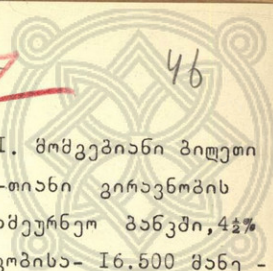 46
I. მომგებიანი ბილეთი
-თიანი გირავნობის
ამეურნეო ბანკში,4½%
კობისა- I6.500 მანე -